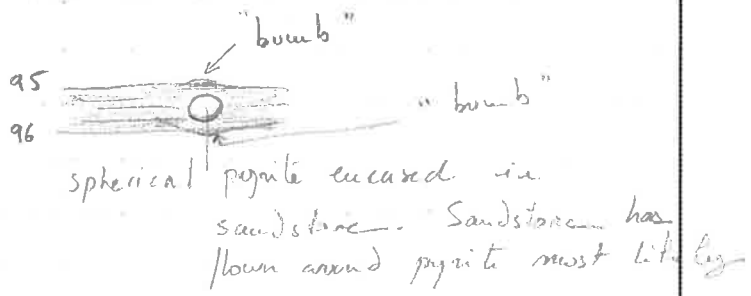 "bumb"
95
"bumb"
96
spherical pyrite encased in
sandstone. Sandstone has
flown around pyrite most likely